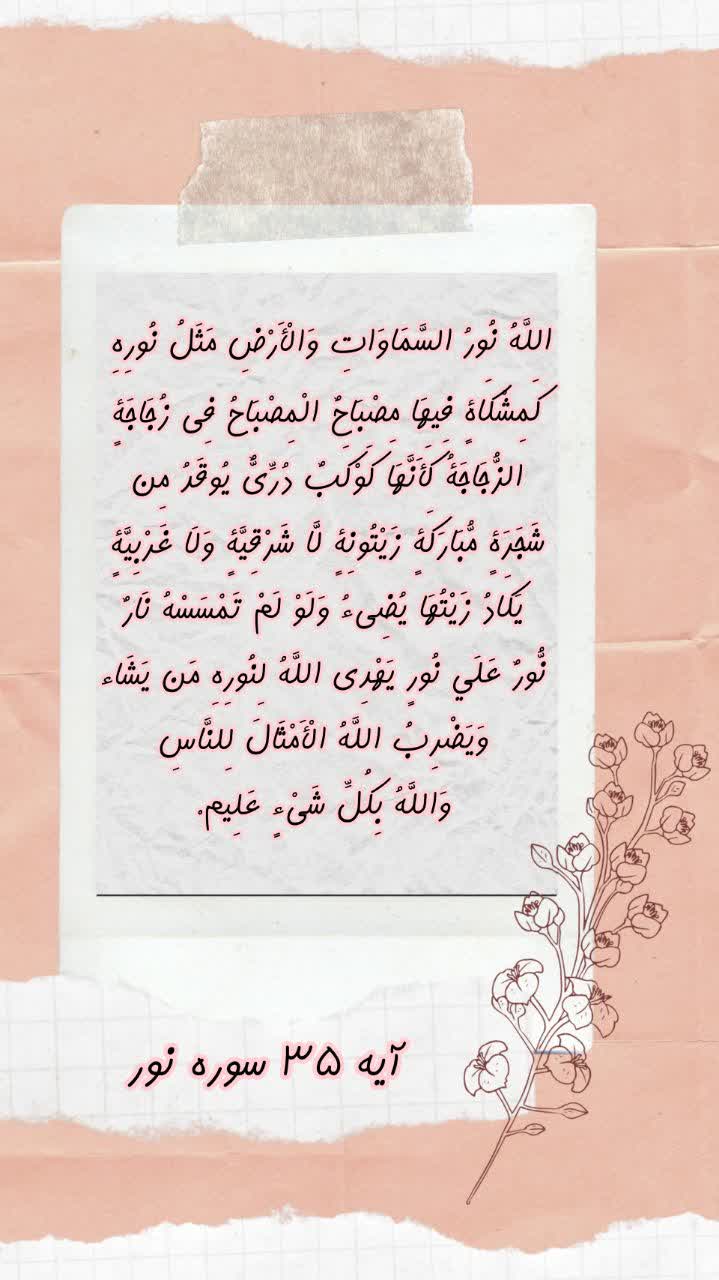 اللَّهُ نُورُ السَّمَاوَاتِ وَالْأَرْضِ مَثَلُ نُورِهِ
كَمِشْكَاةٍ فِيهَا مِصْبَاحٌ الْمِصْبَاحُ فِی زُجَاجَةٍ
الزُّجَاجَةُ كَأَنَّهَا كَوْكَبٌ دُرِّیٌّ يُوقَدُ مِن
شَجَرَةٍ مُّبَارَكَةٍ زَيْتُونِةٍ لَّا شَرْقِيَّةٍ وَلَا غَرْبِيَّةٍ
يَكَادُ زَيْتُهَا يُضِیءُ وَلَوْ لَمْ تَمْسَسْهُ نَارٌ
نُّورٌ عَلَي نُورٍ يَهْدِی اللَّهُ لِنُورِهِ مَن يَشَاء
وَيَضْرِبُ اللَّهُ الْأَمْثَالَ لِلنَّاسِ
وَاللَّهُ بِكُلِّ شَیْءٍ عَلِيم.
آیه ۳۵ سوره نور